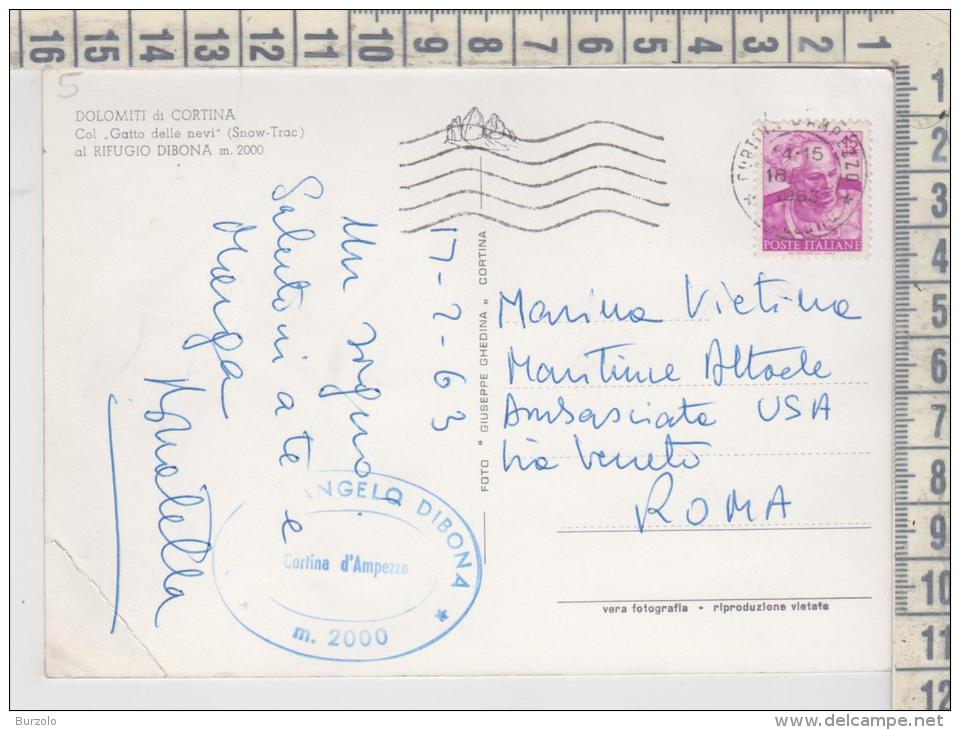 16 15 14 13 12 11 10 9 8 7 6 5 4 3 2 1
5
DOLOMITI di CORTINA
Col „Gatto delle nevi" (Snow-Trac)
al RIFUGIO DIBONA m. 2000
14-15
18
1963
POSTE ITALIANE
17-2-63
Un sogno!
Saluti a te e
Marga
Donatella
FOTO " GIUSEPPE GHEDINA „ CORTINA
Marina Vietina
Maritime Attache
Ambasciata USA
Via Veneto
ROMA
ANGELO DIBONA
Cortina d'Ampezzo
m. 2000
vera fotografia • riproduzione vietata
1
2
3
4
5
6
7
8
9
10
11
12
Burzolo
delcampe.net